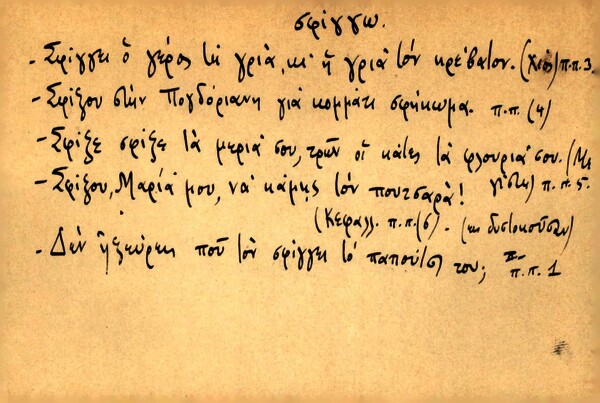 σφίγγω.
- Σφίγγει ὁ γέρος τὴ γριὰ, κι' ἡ γριὰ τὸν κρέβατον. (Χιὸς) π.π. 3.
- Σφίξου στὴν Πογδόριανη γιὰ κομμάτι σφήκωμα. π.π. (4)
- Σφίξε σφίξε τὰ μεριά σου, τρῶν οἱ κάτες τὰ φλουριά σου. (Με
- Σφίξου, Μαρία μου, νὰ κάμῃς τὸν πουτσαρᾶ! γίστη) π.π. 5.
(Κεφαλλ. π.π. (6). (ἐπὶ δυστοκούσης)
- Δὲν ἠξεύρεις ποῦ τὸν σφίγγει τὸ παπούτσι του; π.π. 1